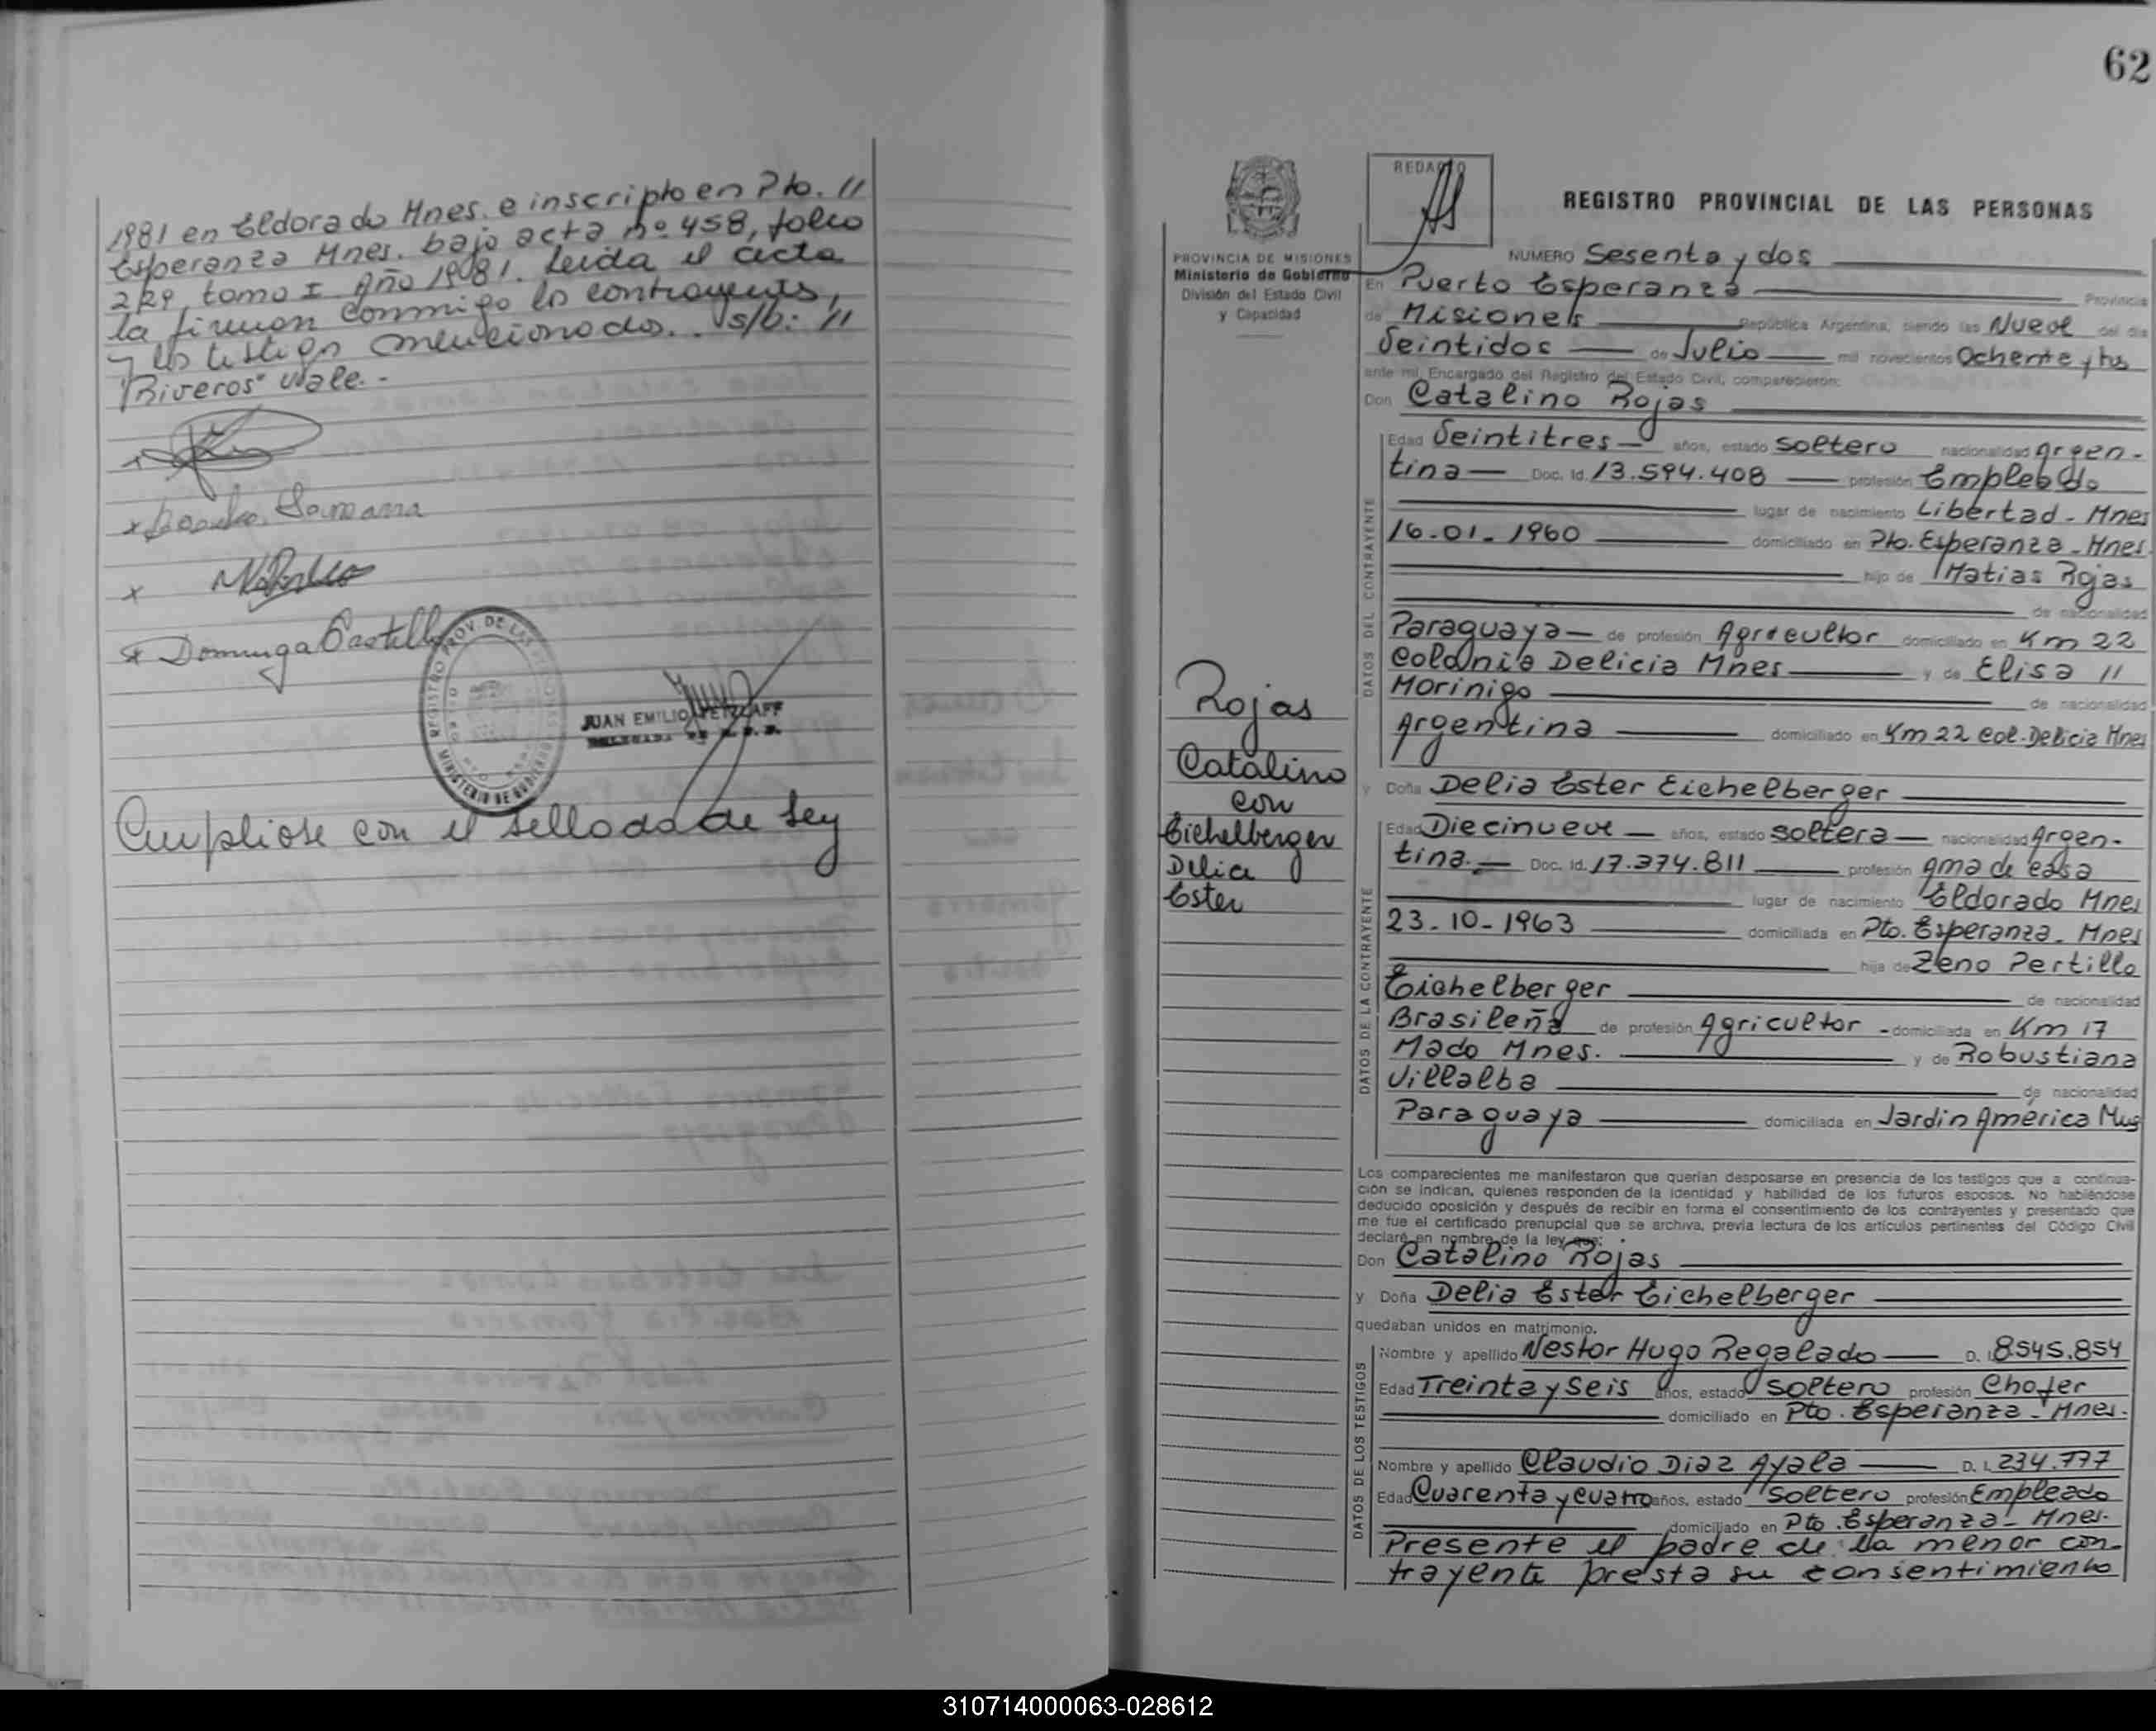 1981 en Eldorado Mnes. e inscripto en Pto. //
Esperanza Mnes. bajo acta nº 458, folio
229, tomo I Año 1981. Leida el acta
la firman conmigo los contrayentes,
y los testigos mencionados.. s/b: //
"Riveros" Vale.-
x
x
x
x Dominga Castillo
REGISTRO PROV. DE LAS
MINISTERIO DE GOBIERNO
JUAN EMILIO
Cumpliose con el sellado de Ley
62
REDACTO
REGISTRO PROVINCIAL DE LAS PERSONAS
PROVINCIA DE MISIONES
Ministerio de Gobierno
División del Estado Civil
y Capacidad
Rojas
Catalino
con
Eichelberger
Delia
Ester
NUMERO Sesenta y dos
En Puerto Esperanza Provincia
de Misiones República Argentina, siendo las Nueve del día
Veintidos de Julio mil novecientos Ochenta y tres
ante mí, Encargado del Registro del Estado Civil, comparecieron:
Don Catalino Rojas
DATOS DEL CONTRAYENTE
Edad Veintitres años, estado soltero nacionalidad Argen-
tina Doc. Id. 13.594.408 profesión Empleado
lugar de nacimiento Libertad - Mnes
16-01-1960 domiciliado en Pto. Esperanza - Mnes.
hijo de Matias Rojas
de nacionalidad
Paraguaya de profesión Agricultor domiciliado en Km 22
Colonia Delicia Mnes y de Elisa //
Morinigo de nacionalidad
Argentina domiciliado en Km 22 Col. Delicia Mnes
y Doña Delia Ester Eichelberger
DATOS DE LA CONTRAYENTE
Edad Diecinueve años, estado soltera nacionalidad Argen-
tina. Doc. Id. 17.374.811 profesión ama de casa
lugar de nacimiento Eldorado Mnes
23-10-1963 domiciliada en Pto. Esperanza - Mnes
hija de Zeno Pertille
Eichelberger de nacionalidad
Brasileña de profesión Agricultor - domiciliada en Km 17
Mado Mnes. y de Robustiana
Villalba de nacionalidad
Paraguaya domiciliada en Jardin América Mns
Los comparecientes me manifestaron que querían desposarse en presencia de los testigos que a continua-
ción se indican, quienes responden de la identidad y habilidad de los futuros esposos. No habiéndose
deducido oposición y después de recibir en forma el consentimiento de los contrayentes y presentado que
me fue el certificado prenupcial que se archiva, previa lectura de los artículos pertinentes del Código Civil
declaré en nombre de la ley que:
Don Catalino Rojas
y Doña Delia Ester Eichelberger
quedaban unidos en matrimonio.
DATOS DE LOS TESTIGOS
Nombre y apellido Nestor Hugo Regalado D. I. 8.545.854
Edad Treinta y Seis años, estado soltero profesión Chofer
domiciliado en Pto. Esperanza - Mnes.
Nombre y apellido Claudio Diaz Ayala D. I. 234.777
Edad Cuarenta y cuatro años, estado soltero profesión Empleado
domiciliado en Pto. Esperanza - Mnes.
Presente el padre de la menor con-
trayente presta su consentimiento
310714000063-028612